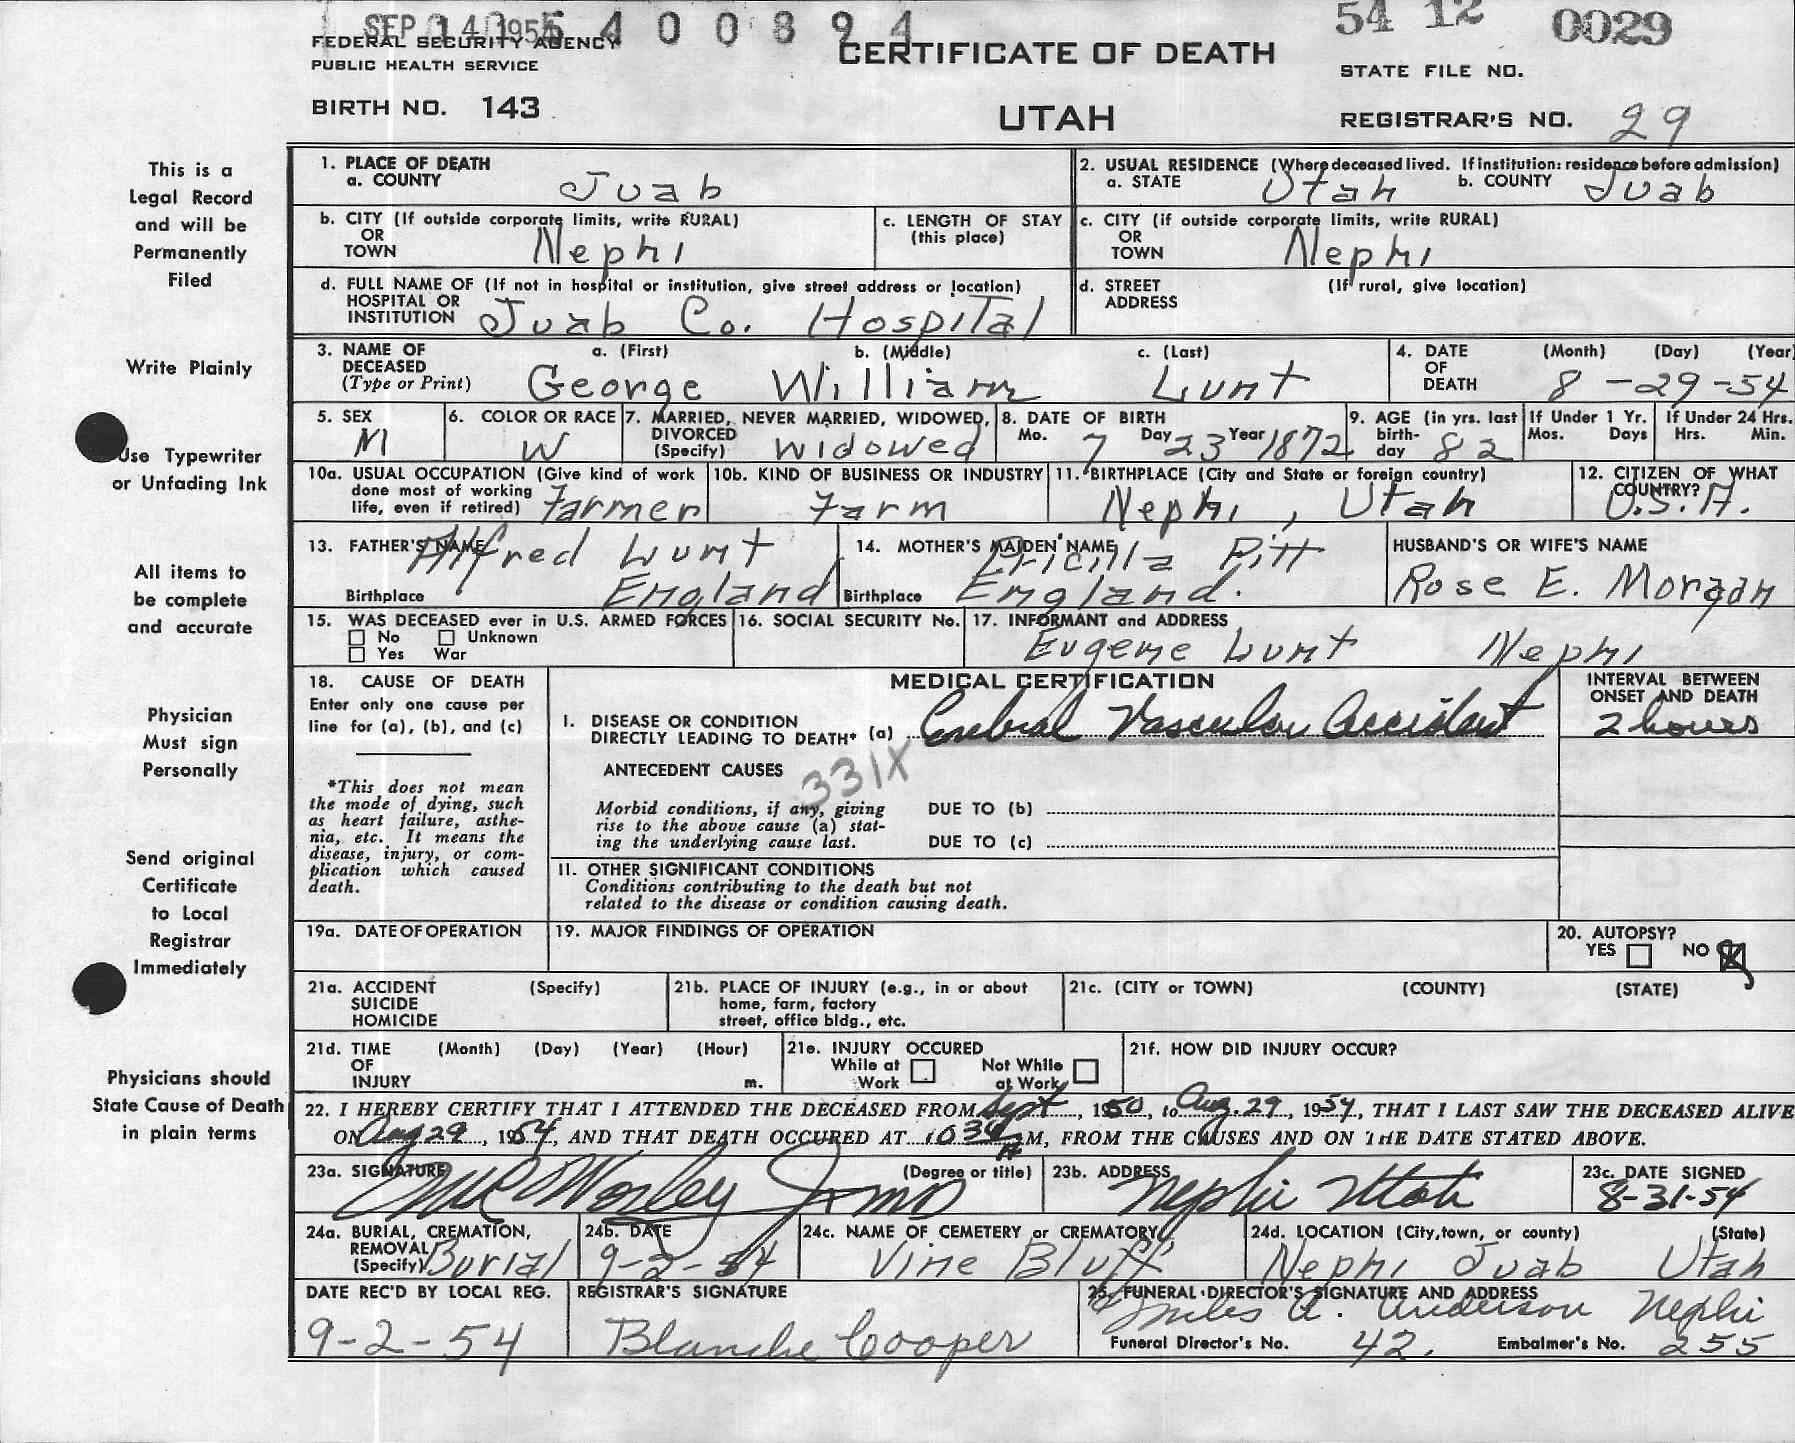 SEP 14 1954 5400894
54 12 0029
FEDERAL SECURITY AGENCY
PUBLIC HEALTH SERVICE
CERTIFICATE OF DEATH
STATE FILE NO.
BIRTH NO. 143
UTAH
REGISTRAR'S NO. 29
This is a
Legal Record
and will be
Permanently
Filed
Write Plainly
Use Typewriter
or Unfading Ink
All items to
be complete
and accurate
Physician
Must sign
Personally
Send original
Certificate
to Local
Registrar
Immediately
Physicians should
State Cause of Death
in plain terms
1. PLACE OF DEATH
a. COUNTY Juab
2. USUAL RESIDENCE (Where deceased lived. If institution: residence before admission)
a. STATE Utah b. COUNTY Juab
b. CITY (If outside corporate limits, write RURAL)
OR
TOWN Nephi
c. LENGTH OF STAY
(this place)
c. CITY (if outside corporate limits, write RURAL)
OR
TOWN Nephi
d. FULL NAME OF (If not in hospital or institution, give street address or location)
HOSPITAL OR
INSTITUTION Juab Co. Hospital
d. STREET (If rural, give location)
ADDRESS
3. NAME OF a. (First) b. (Middle) c. (Last)
DECEASED
(Type or Print) George William Lunt
4. DATE (Month) (Day) (Year)
OF
DEATH 8-29-54
5. SEX
M
6. COLOR OR RACE
W
7. MARRIED, NEVER MARRIED, WIDOWED,
DIVORCED
(Specify) Widowed
8. DATE OF BIRTH
Mo. 7 Day 23 Year 1872
9. AGE (in yrs. last
birth-
day 82
If Under 1 Yr.
Mos. Days
If Under 24 Hrs.
Hrs. Min.
10a. USUAL OCCUPATION (Give kind of work
done most of working
life, even if retired) Farmer
10b. KIND OF BUSINESS OR INDUSTRY
Farm
11. BIRTHPLACE (City and State or foreign country)
Nephi, Utah
12. CITIZEN OF WHAT
COUNTRY?
U.S.A.
13. FATHER'S NAME Alfred Lunt
Birthplace England
14. MOTHER'S MAIDEN NAME Pricilla Pitt
Birthplace England.
HUSBAND'S OR WIFE'S NAME
Rose E. Morgan
15. WAS DECEASED ever in U.S. ARMED FORCES
No Unknown
Yes War
16. SOCIAL SECURITY No.
17. INFORMANT and ADDRESS
Eugene Lunt Nephi
18. CAUSE OF DEATH
Enter only one cause per
line for (a), (b), and (c)
*This does not mean
the mode of dying, such
as heart failure, asthe-
nia, etc. It means the
disease, injury, or com-
plication which caused
death.
MEDICAL CERTIFICATION
INTERVAL BETWEEN
ONSET AND DEATH
I. DISEASE OR CONDITION
DIRECTLY LEADING TO DEATH* (a) Cerebral Vascular Accident 2 hours
ANTECEDENT CAUSES 331X
Morbid conditions, if any, giving
rise to the above cause (a) stat-
ing the underlying cause last.
DUE TO (b)
DUE TO (c)
II. OTHER SIGNIFICANT CONDITIONS
Conditions contributing to the death but not
related to the disease or condition causing death.
19a. DATE OF OPERATION
19. MAJOR FINDINGS OF OPERATION
20. AUTOPSY?
YES NO
21a. ACCIDENT (Specify)
SUICIDE
HOMICIDE
21b. PLACE OF INJURY (e.g., in or about
home, farm, factory
street, office bldg., etc.
21c. (CITY or TOWN) (COUNTY) (STATE)
21d. TIME (Month) (Day) (Year) (Hour)
OF
INJURY m.
21e. INJURY OCCURED
While at Not While
Work at Work
21f. HOW DID INJURY OCCUR?
22. I HEREBY CERTIFY THAT I ATTENDED THE DECEASED FROM Sept, 1950, to Aug. 29, 1954, THAT I LAST SAW THE DECEASED ALIVE
ON Aug 29, 1954, AND THAT DEATH OCCURED AT 1030 A M, FROM THE CAUSES AND ON THE DATE STATED ABOVE.
23a. SIGNATURE (Degree or title)
Worley MD
23b. ADDRESS
Nephi Utah
23c. DATE SIGNED
8-31-54
24a. BURIAL, CREMATION,
REMOVAL
(Specify) Burial
24b. DATE
9-2-54
24c. NAME OF CEMETERY or CREMATORY
Vine Bluff
24d. LOCATION (City, town, or county) (State)
Nephi Juab Utah
DATE REC'D BY LOCAL REG.
9-2-54
REGISTRAR'S SIGNATURE
Blanche Cooper
25. FUNERAL DIRECTOR'S SIGNATURE AND ADDRESS
Miles A. Anderson Nephi
Funeral Director's No. 42. Embalmer's No. 255